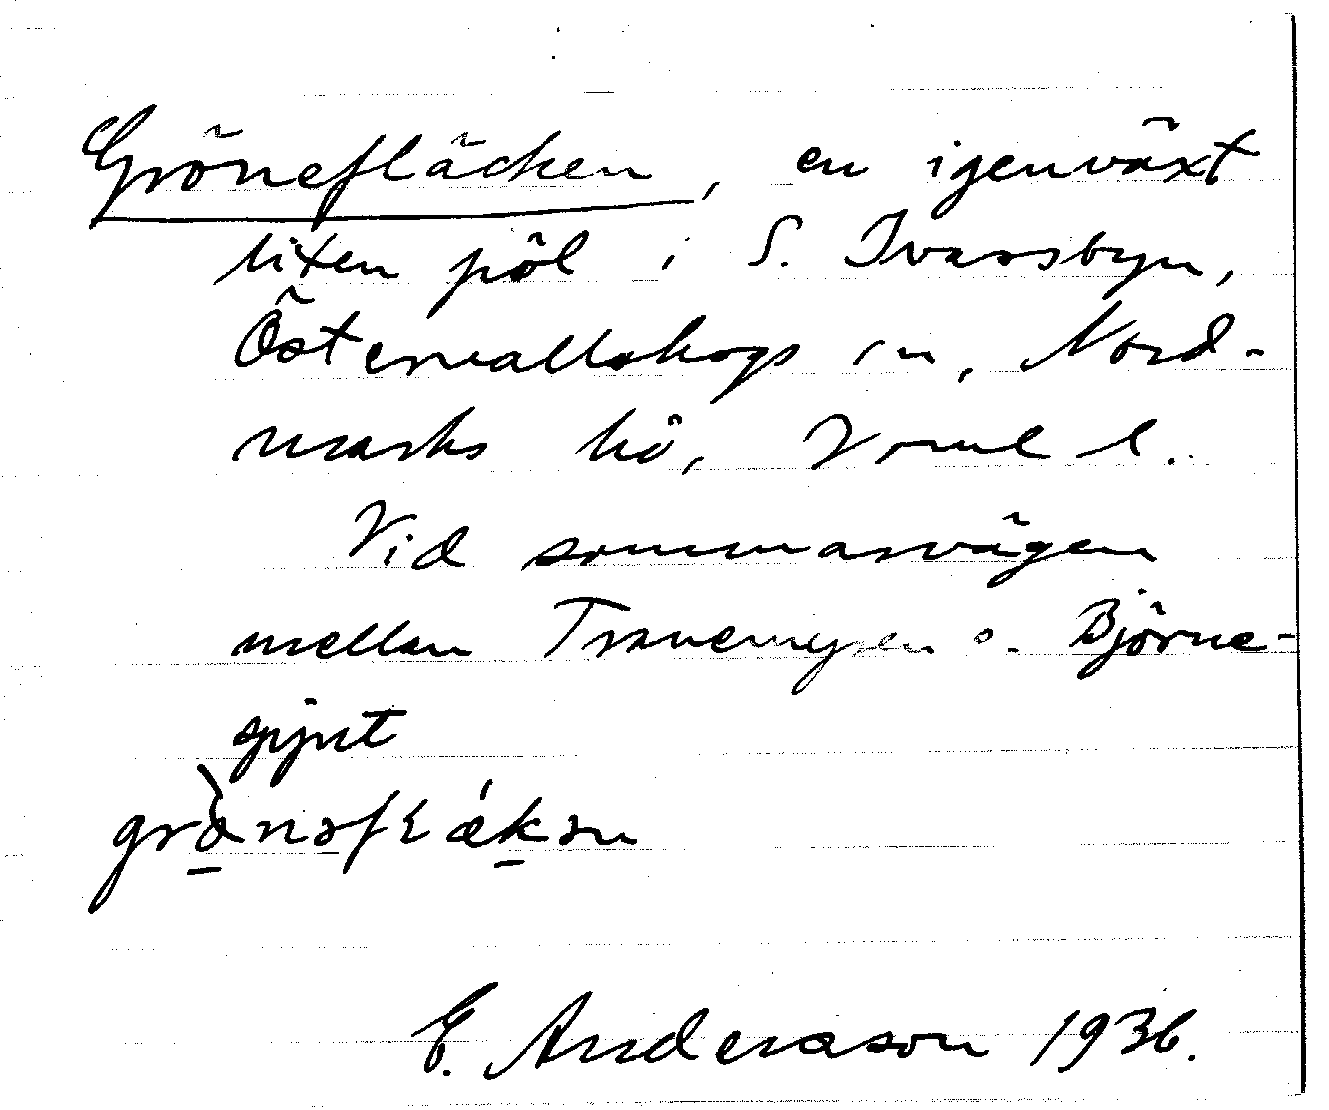 Grönefläcken, en igenväxt
liten pöl i S. Ivarsbyn,
Östervallskogs sn, Nord-
marks hd, Vrml l.
Vid sommarvägen
mellan Tranemysen o. Björne-
E. Andersson 1936.